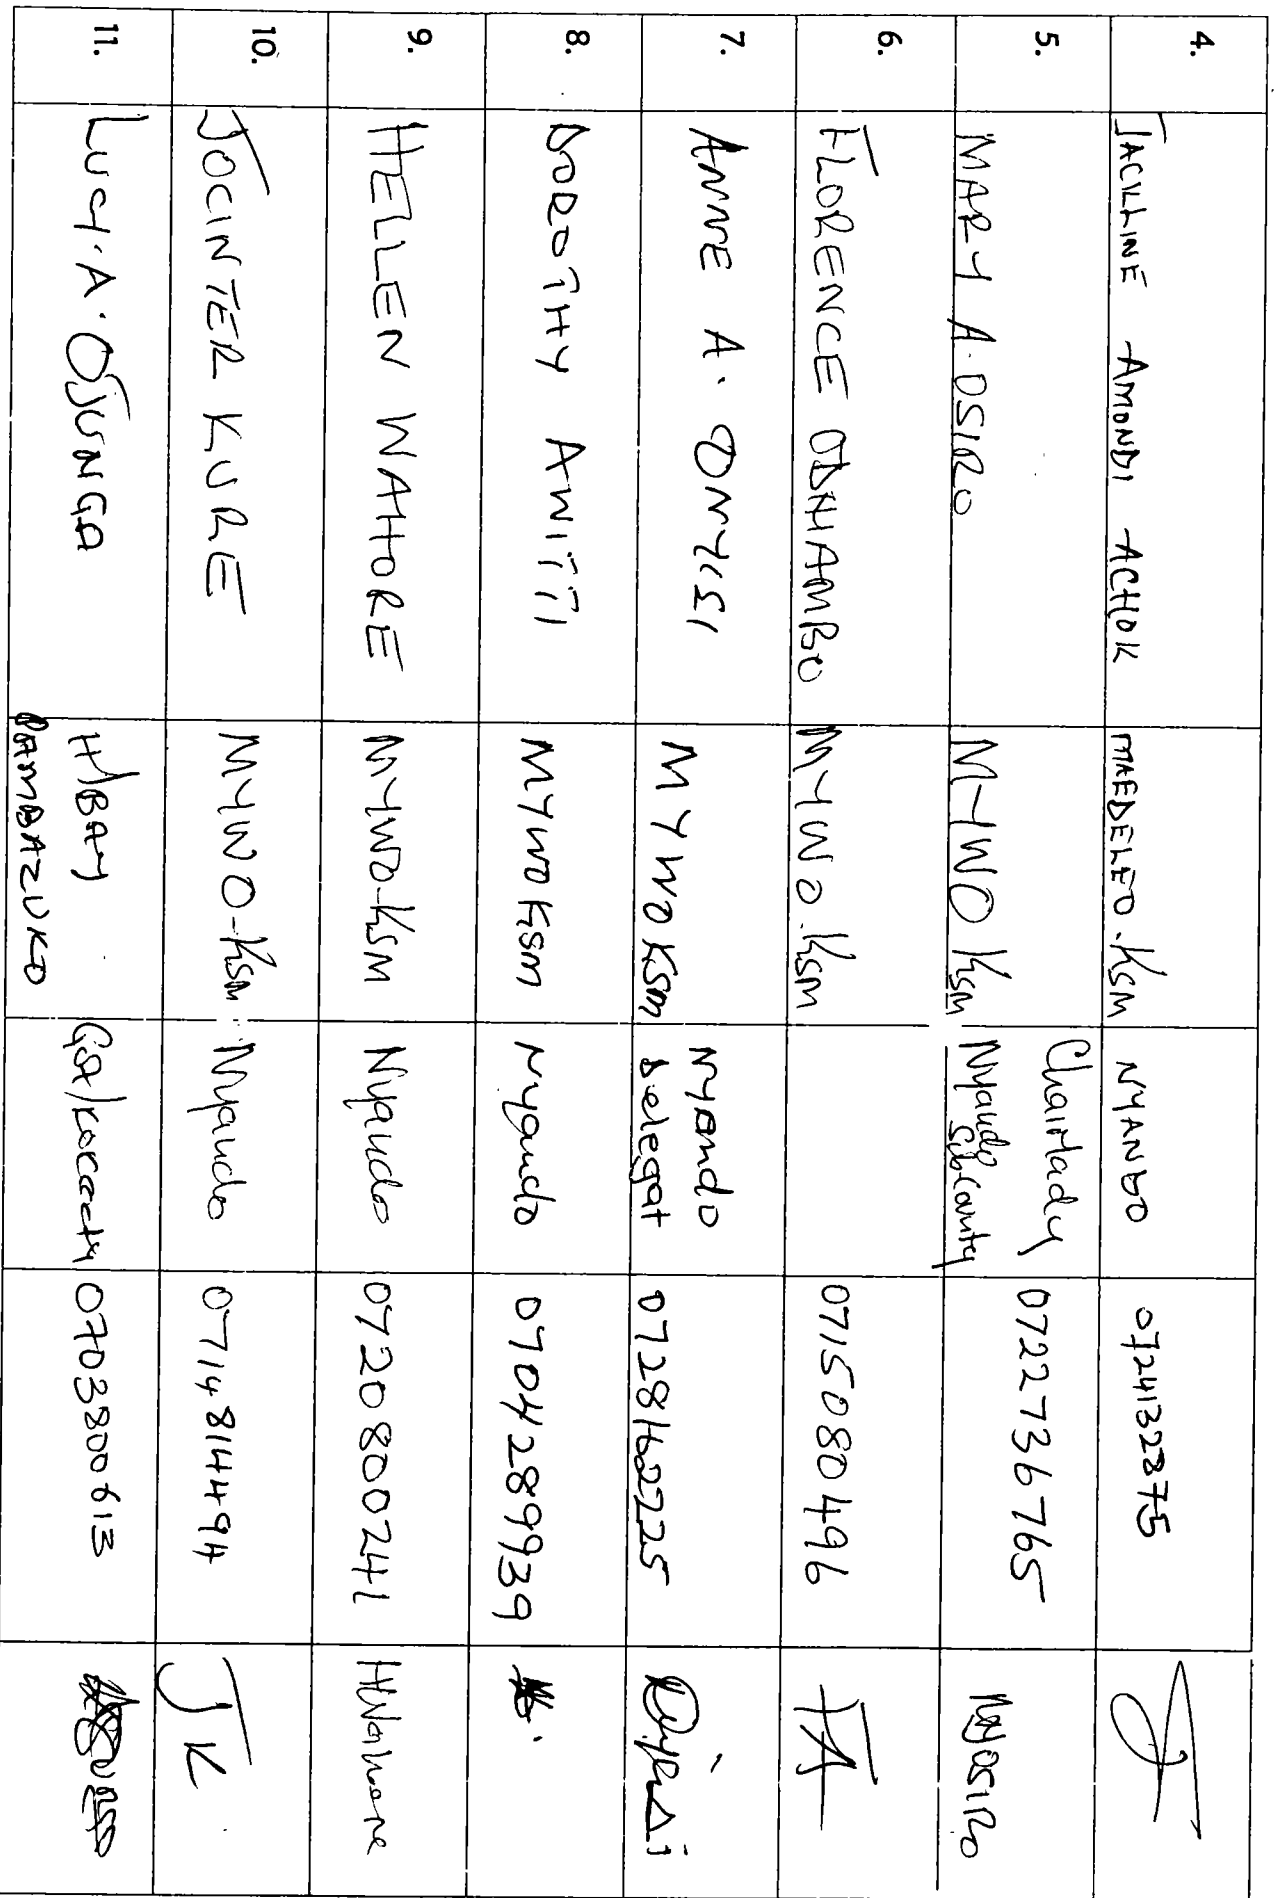 4. JACKLINE AMONDI ACHOK MAEDELEO.KSM NYANDO 0724132875
5. MARY A. OSIRO MYWO KSM Chairlady
Nyando
Sub County 0722736765 MyOSIRO
6. FLORENCE ODHIAMBO MYWO.KSM 0715080496 FA
7. ANNE A. ONYISI MYWO KSM Nyando
Delegat 0728162225
8. DOROTHY AWITTI MYWO KSM Nyando 0704289939
9. HELLEN WAHORE MYWO-KSM Nyando 0720800241 HWahore
10. JOCINTER KURE MYWO-KSM Nyando 0714814494 JK
11. LUCY.A.OJUNGA H/BAY
PAMBAZUKO 0703800613